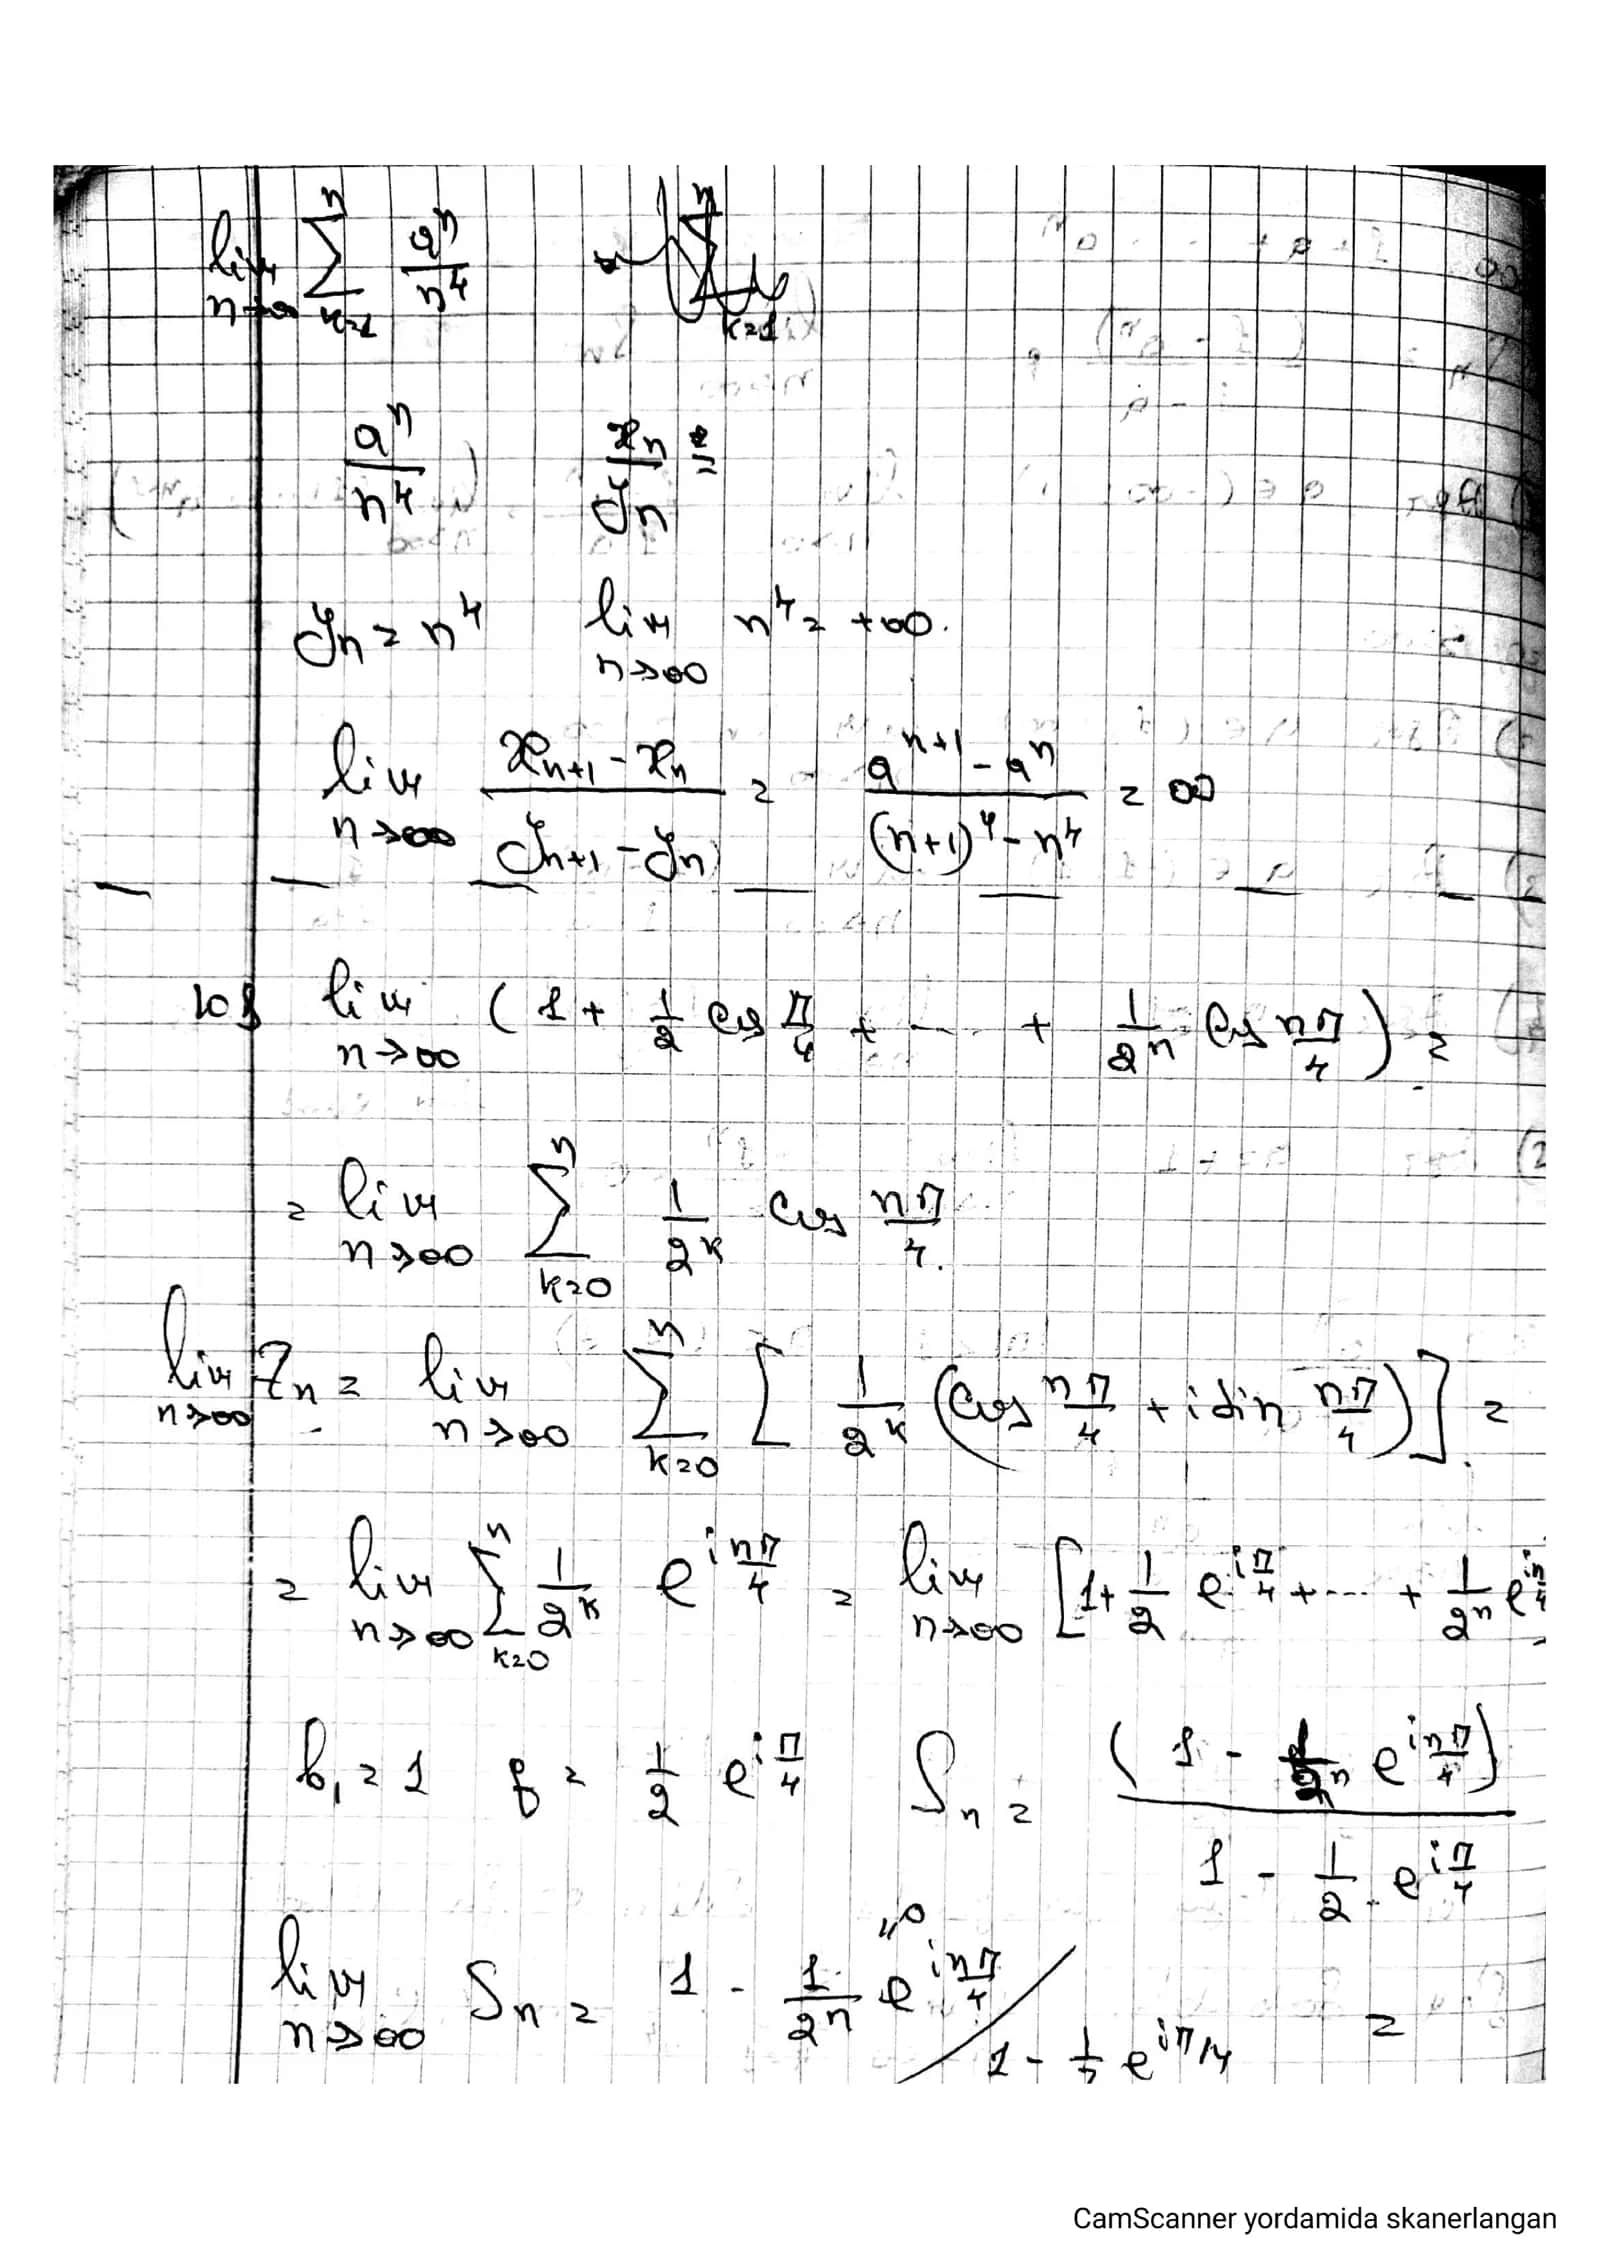 lim n→∞ ∑ k=1 n aⁿ/n⁴
k=1
aⁿ/n⁴ xn/yn =
yn = n⁴ lim n→∞ n⁴ = +∞.
lim n→∞ (xn+1 - xn)/(yn+1 - yn) = (aⁿ⁺¹ - aⁿ)/((n+1)⁴ - n⁴) = ∞
lim n→∞ (1 + 1/2 cos π/4 + .... + 1/2ⁿ cos nπ/4) =
= lim n→∞ ∑ k=0 n 1/2ᵏ cos nπ/4.
lim n→∞ Zn = lim n→∞ ∑ k=0 n [1/2ᵏ (cos nπ/4 + i sin nπ/4)] =
= lim n→∞ ∑ k=0 n 1/2ᵏ e^(i nπ/4) = lim n→∞ [1 + 1/2 e^(i π/4) + .... + 1/2ⁿ e^(i nπ/4)
b₁ = 1 q = 1/2 e^(i π/4) Sn = (1 - 1/2ⁿ e^(i nπ/4))/(1 - 1/2 e^(i π/4))
lim n→∞ Sn = 1 - 1/2ⁿ e^(i nπ/4) / 1 - 1/2 e^(iπ/4) =
CamScanner yordamida skanerlangan